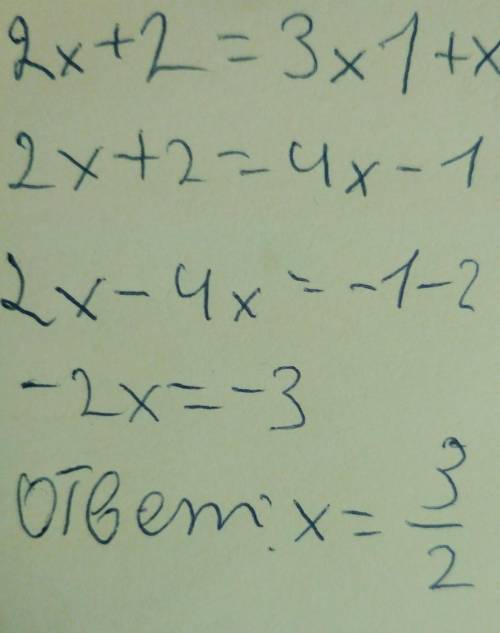 2x+2=3x1+x
2x+2=4x-1
2x-4x=-1-2
-2x=-3
Ответ: x=3/2